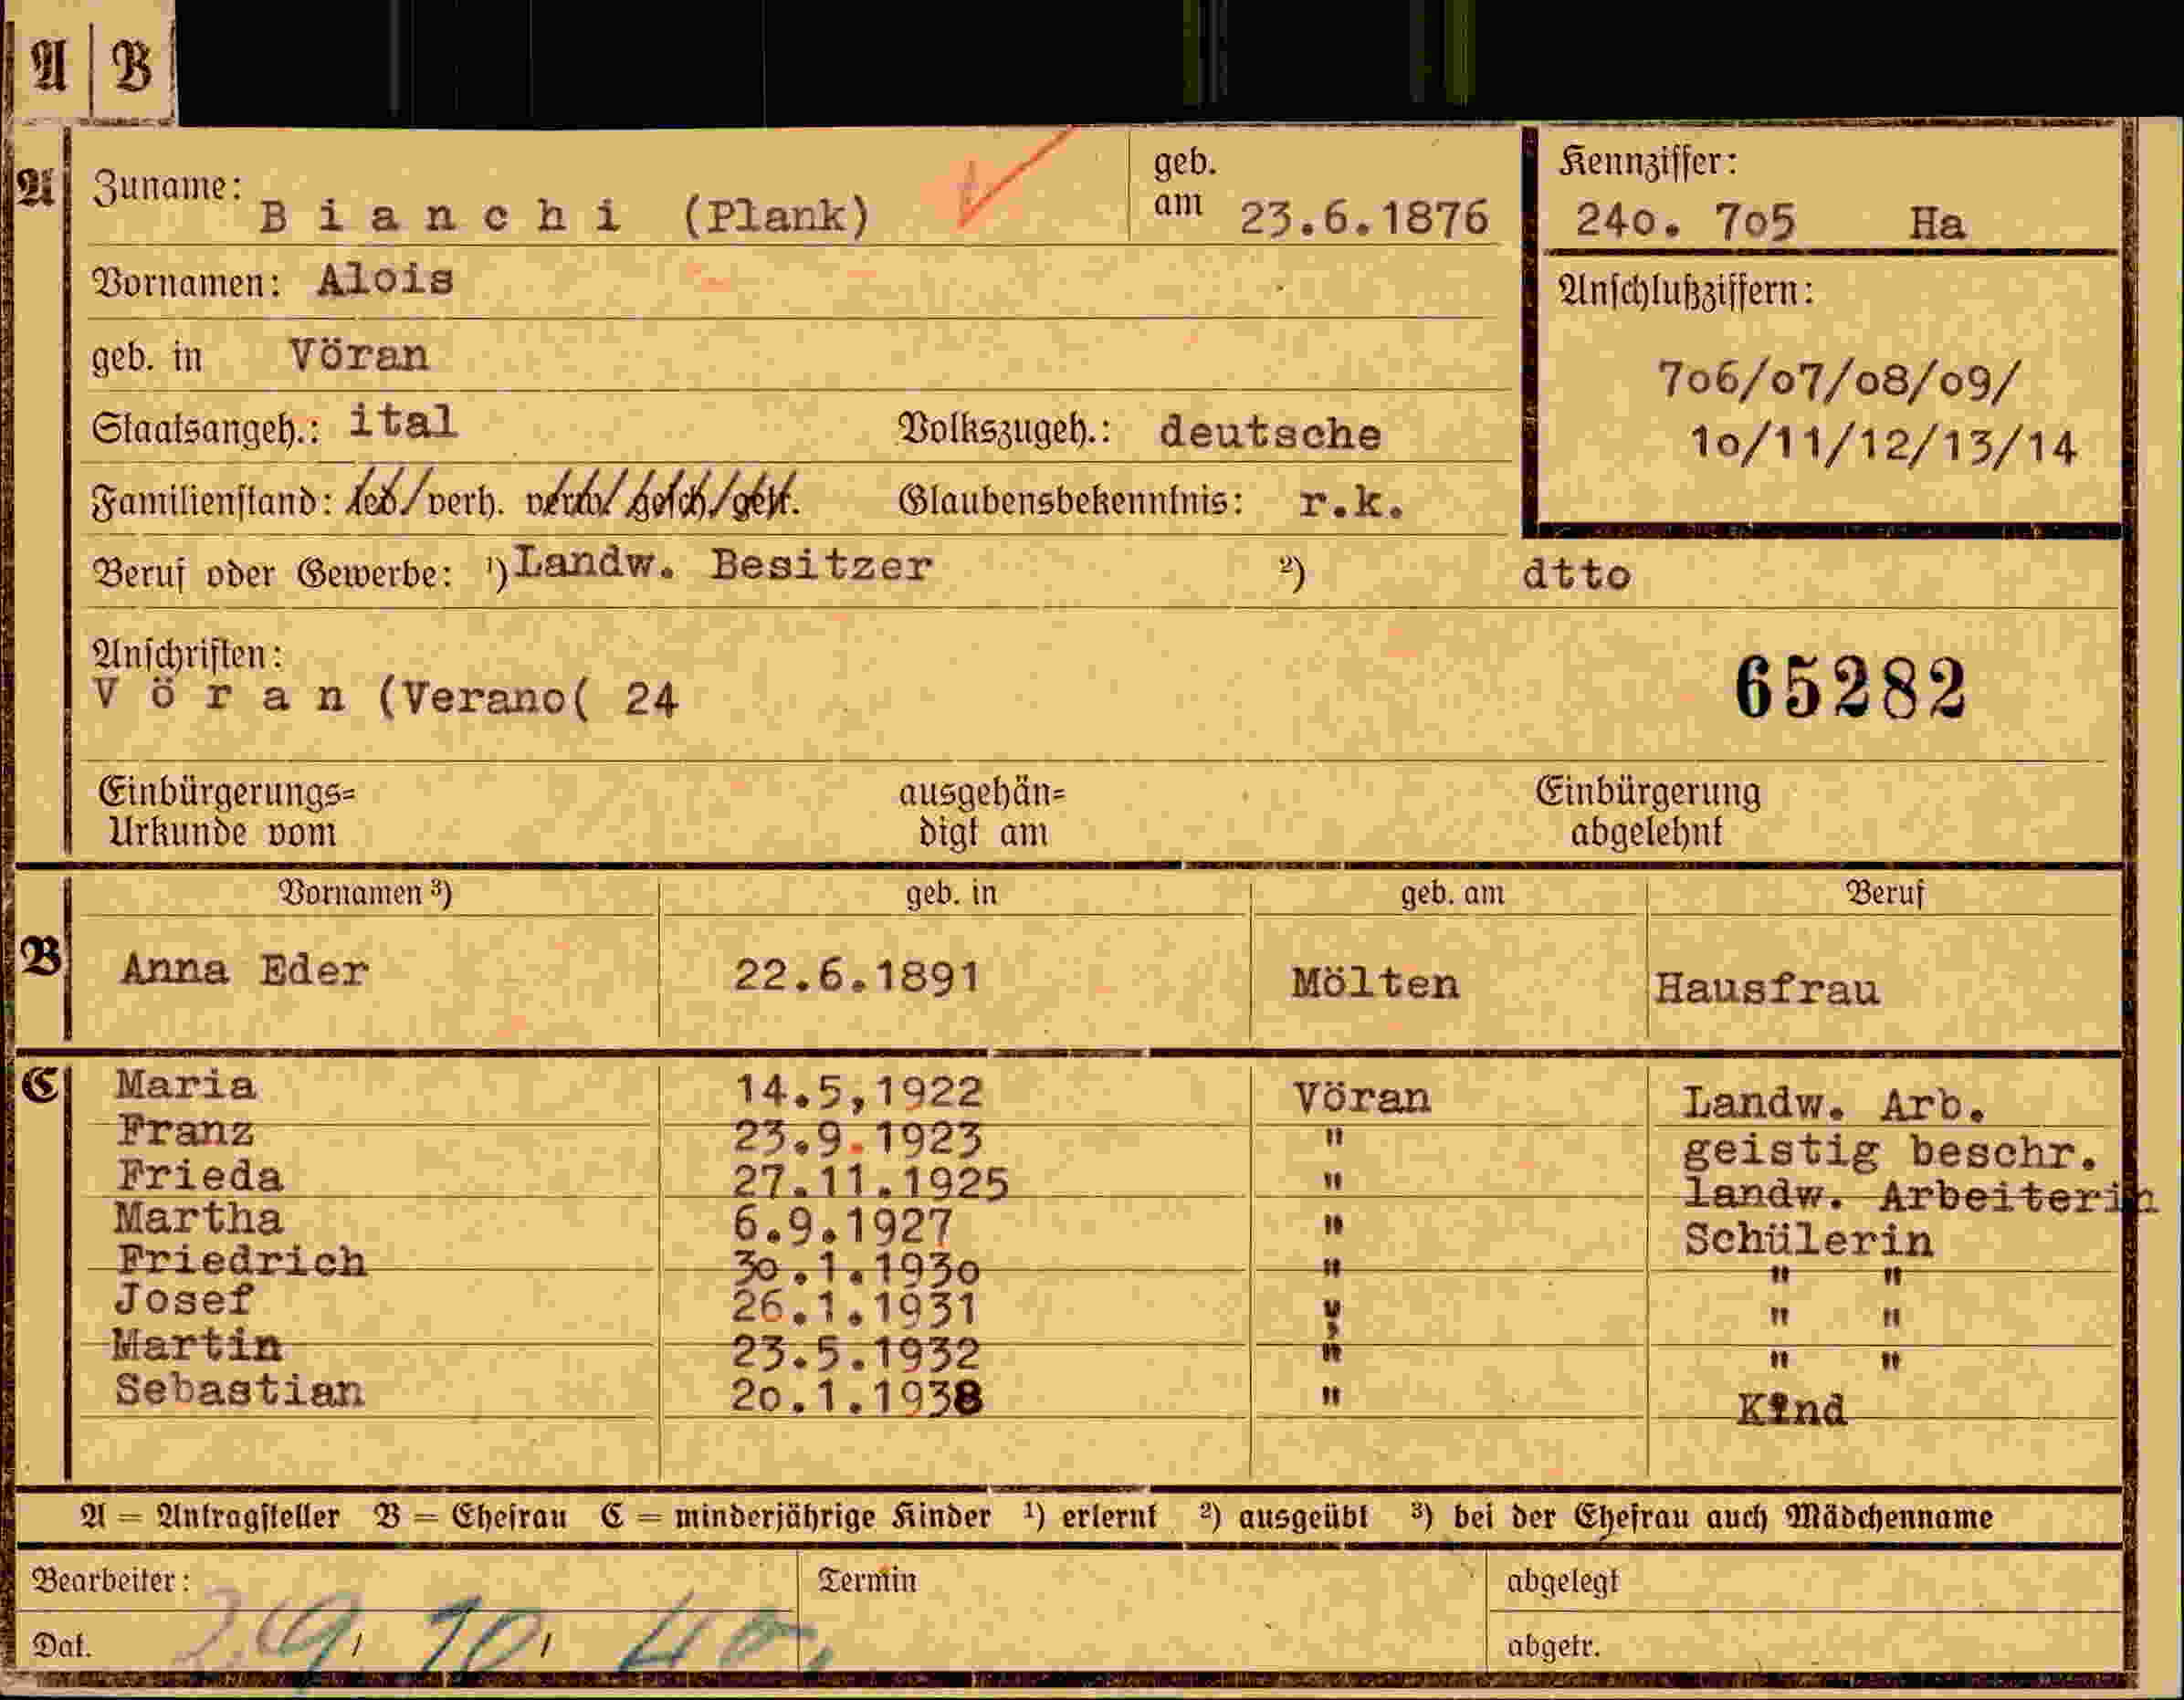 A B
A Zuname: Bianchi (Plank) geb. am 23.6.1876
Kennziffer:
240. 705 Ha
Vornamen: Alois
Anschlußziffern:
geb. in Vöran
706/07/08/09/
10/11/12/13/14
Staatsangeh.: ital Volkszugeh.: deutsche
Familienstand: led/verh. verw/gesch/getr. Glaubensbekenntnis: r.k.
Beruf oder Gewerbe: ¹) Landw. Besitzer ²) dtto
Anschriften:
Vöran (Verano( 24
65282
Einbürgerungs= ausgehän= Einbürgerung
Urkunde vom digt am abgelehnt
Vornamen ³) geb. in geb. am Beruf
B Anna Eder 22.6.1891 Mölten Hausfrau
C Maria 14.5,1922 Vöran Landw. Arb.
Franz 23.9.1923 " geistig beschr.
Frieda 27.11.1925 " landw. Arbeiterin
Martha 6.9.1927 " Schülerin
Friedrich 30.1.1930 " " "
Josef 26.1.1931 " " "
Martin 23.5.1932 " " "
Sebastian 20.1.1938 " Kind
A = Antragsteller B = Ehefrau C = minderjährige Kinder ¹) erlernt ²) ausgeübt ³) bei der Ehefrau auch Mädchenname
Bearbeiter: Termin abgelegt
Dat. 29. 10. 40. abgetr.